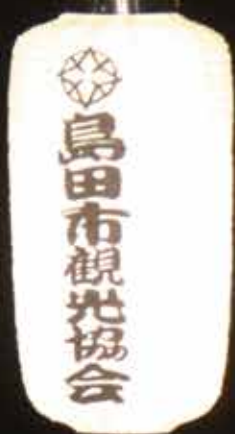 島田市観光協会